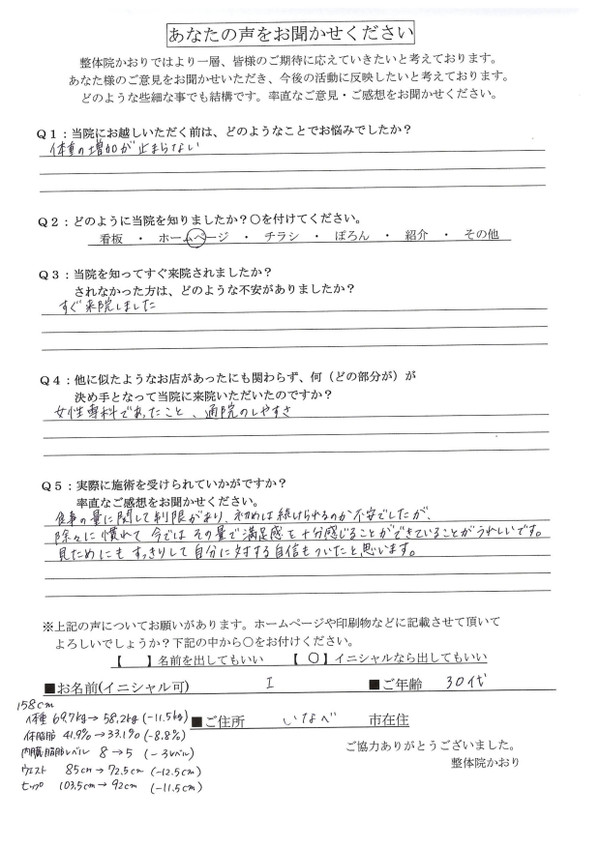 あなたの声をお聞かせください
整体院かおりではより一層、皆様のご期待に応えていきたいと考えております。
あなた様のご意見をお聞かせいただき、今後の活動に反映したいと考えております。
どのような些細な事でも結構です。率直なご意見・ご感想をお聞かせください。
Q1：当院にお越しいただく前は、どのようなことでお悩みでしたか？
体重の増加が止まらない
Q2：どのように当院を知りましたか？〇を付けてください。
看板　・　ホームページ　・　チラシ　・　ぽろん　・　紹介　・　その他
Q3：当院を知ってすぐ来院されましたか？
されなかった方は、どのような不安がありましたか？
すぐ来院しました
Q4：他に似たようなお店があったにも関わらず、何（どの部分が）が
決め手となって当院に来院いただいたのですか？
女性専科であったこと、通院のしやすさ
Q5：実際に施術を受けられていかがですか？
率直なご感想をお聞かせください。
食事の量に関して制限があり、初めは続けられるのか不安でしたが、
除々に慣れて今ではその量で満足感を十分感じることができていることがうれしいです。
見ためにもすっきりして自分に対する自信もついたと思います。
※上記の声についてお願いがあります。ホームページや印刷物などに記載させて頂いて
よろしいでしょうか？下記の中から〇をお付けください。
【　　】名前を出してもいい　　【 〇 】イニシャルなら出してもいい
■お名前(イニシャル可)　I　■ご年齢　30代
■ご住所　いなべ　市在住
158cm
体重 69.7kg→58.2kg (-11.5kg)
体脂肪 41.9%→33.1% (-8.8%)
内臓脂肪レベル 8→5 (-3レベル)
ウエスト 85cm→72.5cm (-12.5cm)
ヒップ 103.5cm→92cm (-11.5cm)
ご協力ありがとうございました。
整体院かおり